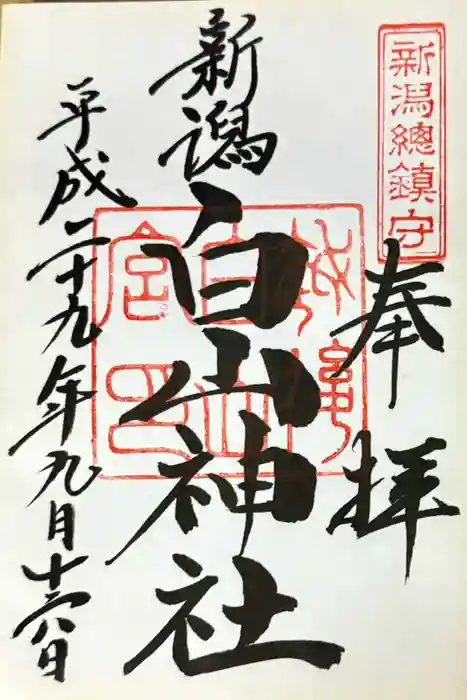 新潟總鎮守
奉拝
新潟
白山神社
平成二十九年九月十六日
白山
宮印